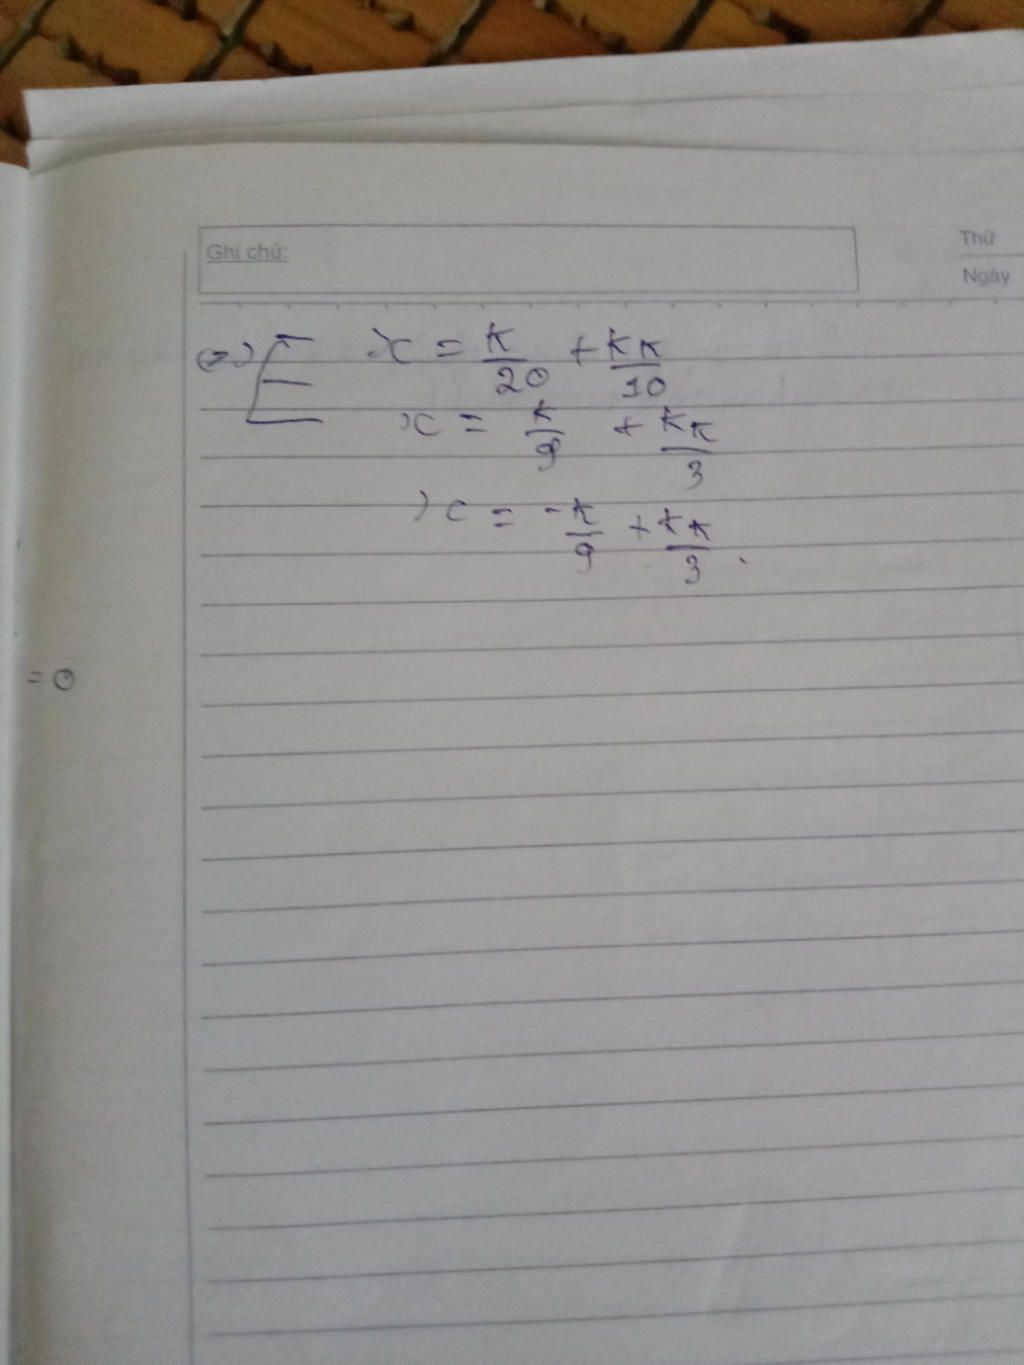 Ghi chú:
Thứ
Ngày
⇔ [ x = π/20 + kπ/10
x = π/9 + kπ/3
x = -π/9 + kπ/3 .
= 0